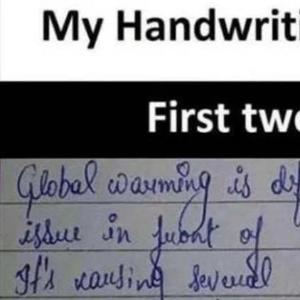 My Handwriti
First tw
Global warming is
issue in front of
It's causing several